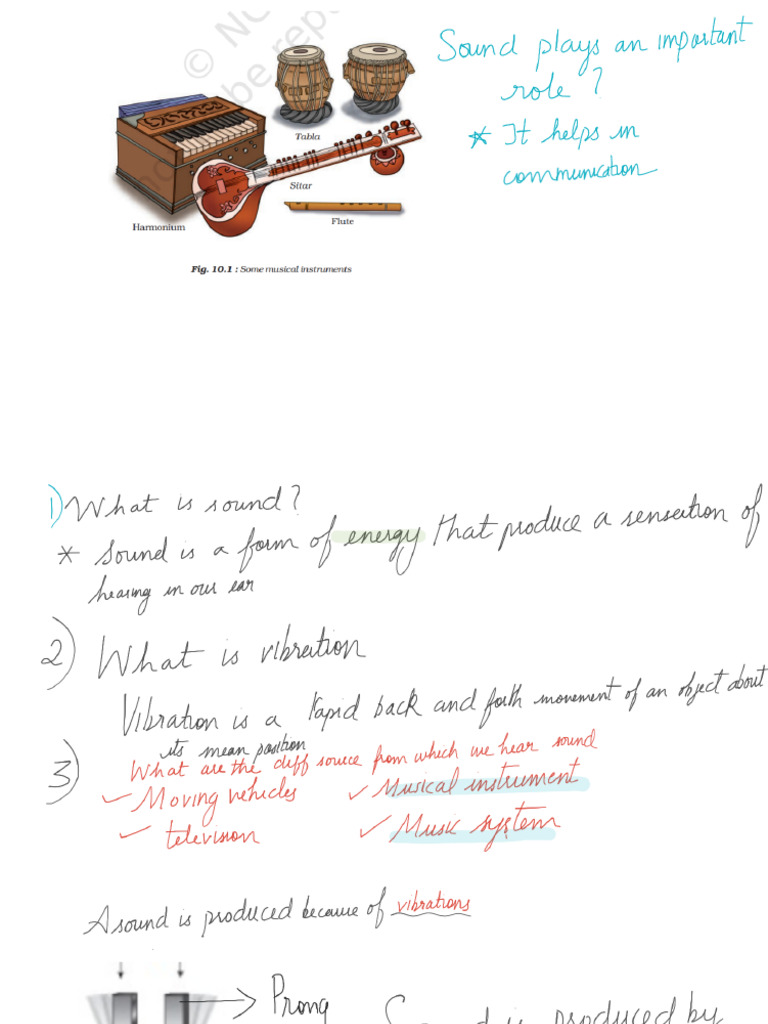 © NC
no be rep
Sound plays an important
role?
* It helps in
communication
Tabla
Sitar
Harmonium
Flute
Fig. 10.1 : Some musical instruments
1) What is sound?
* Sound is a form of energy that produce a sensation of
hearing in our ear
2) What is vibration
Vibration is a rapid back and forth movement of an object about
its mean position
3) What are the diff source from which we hear sound
✓ Moving vehicles ✓ Musical instrument
✓ television ✓ Music system
A sound is produced because of vibrations
Prong
Sound is produced by